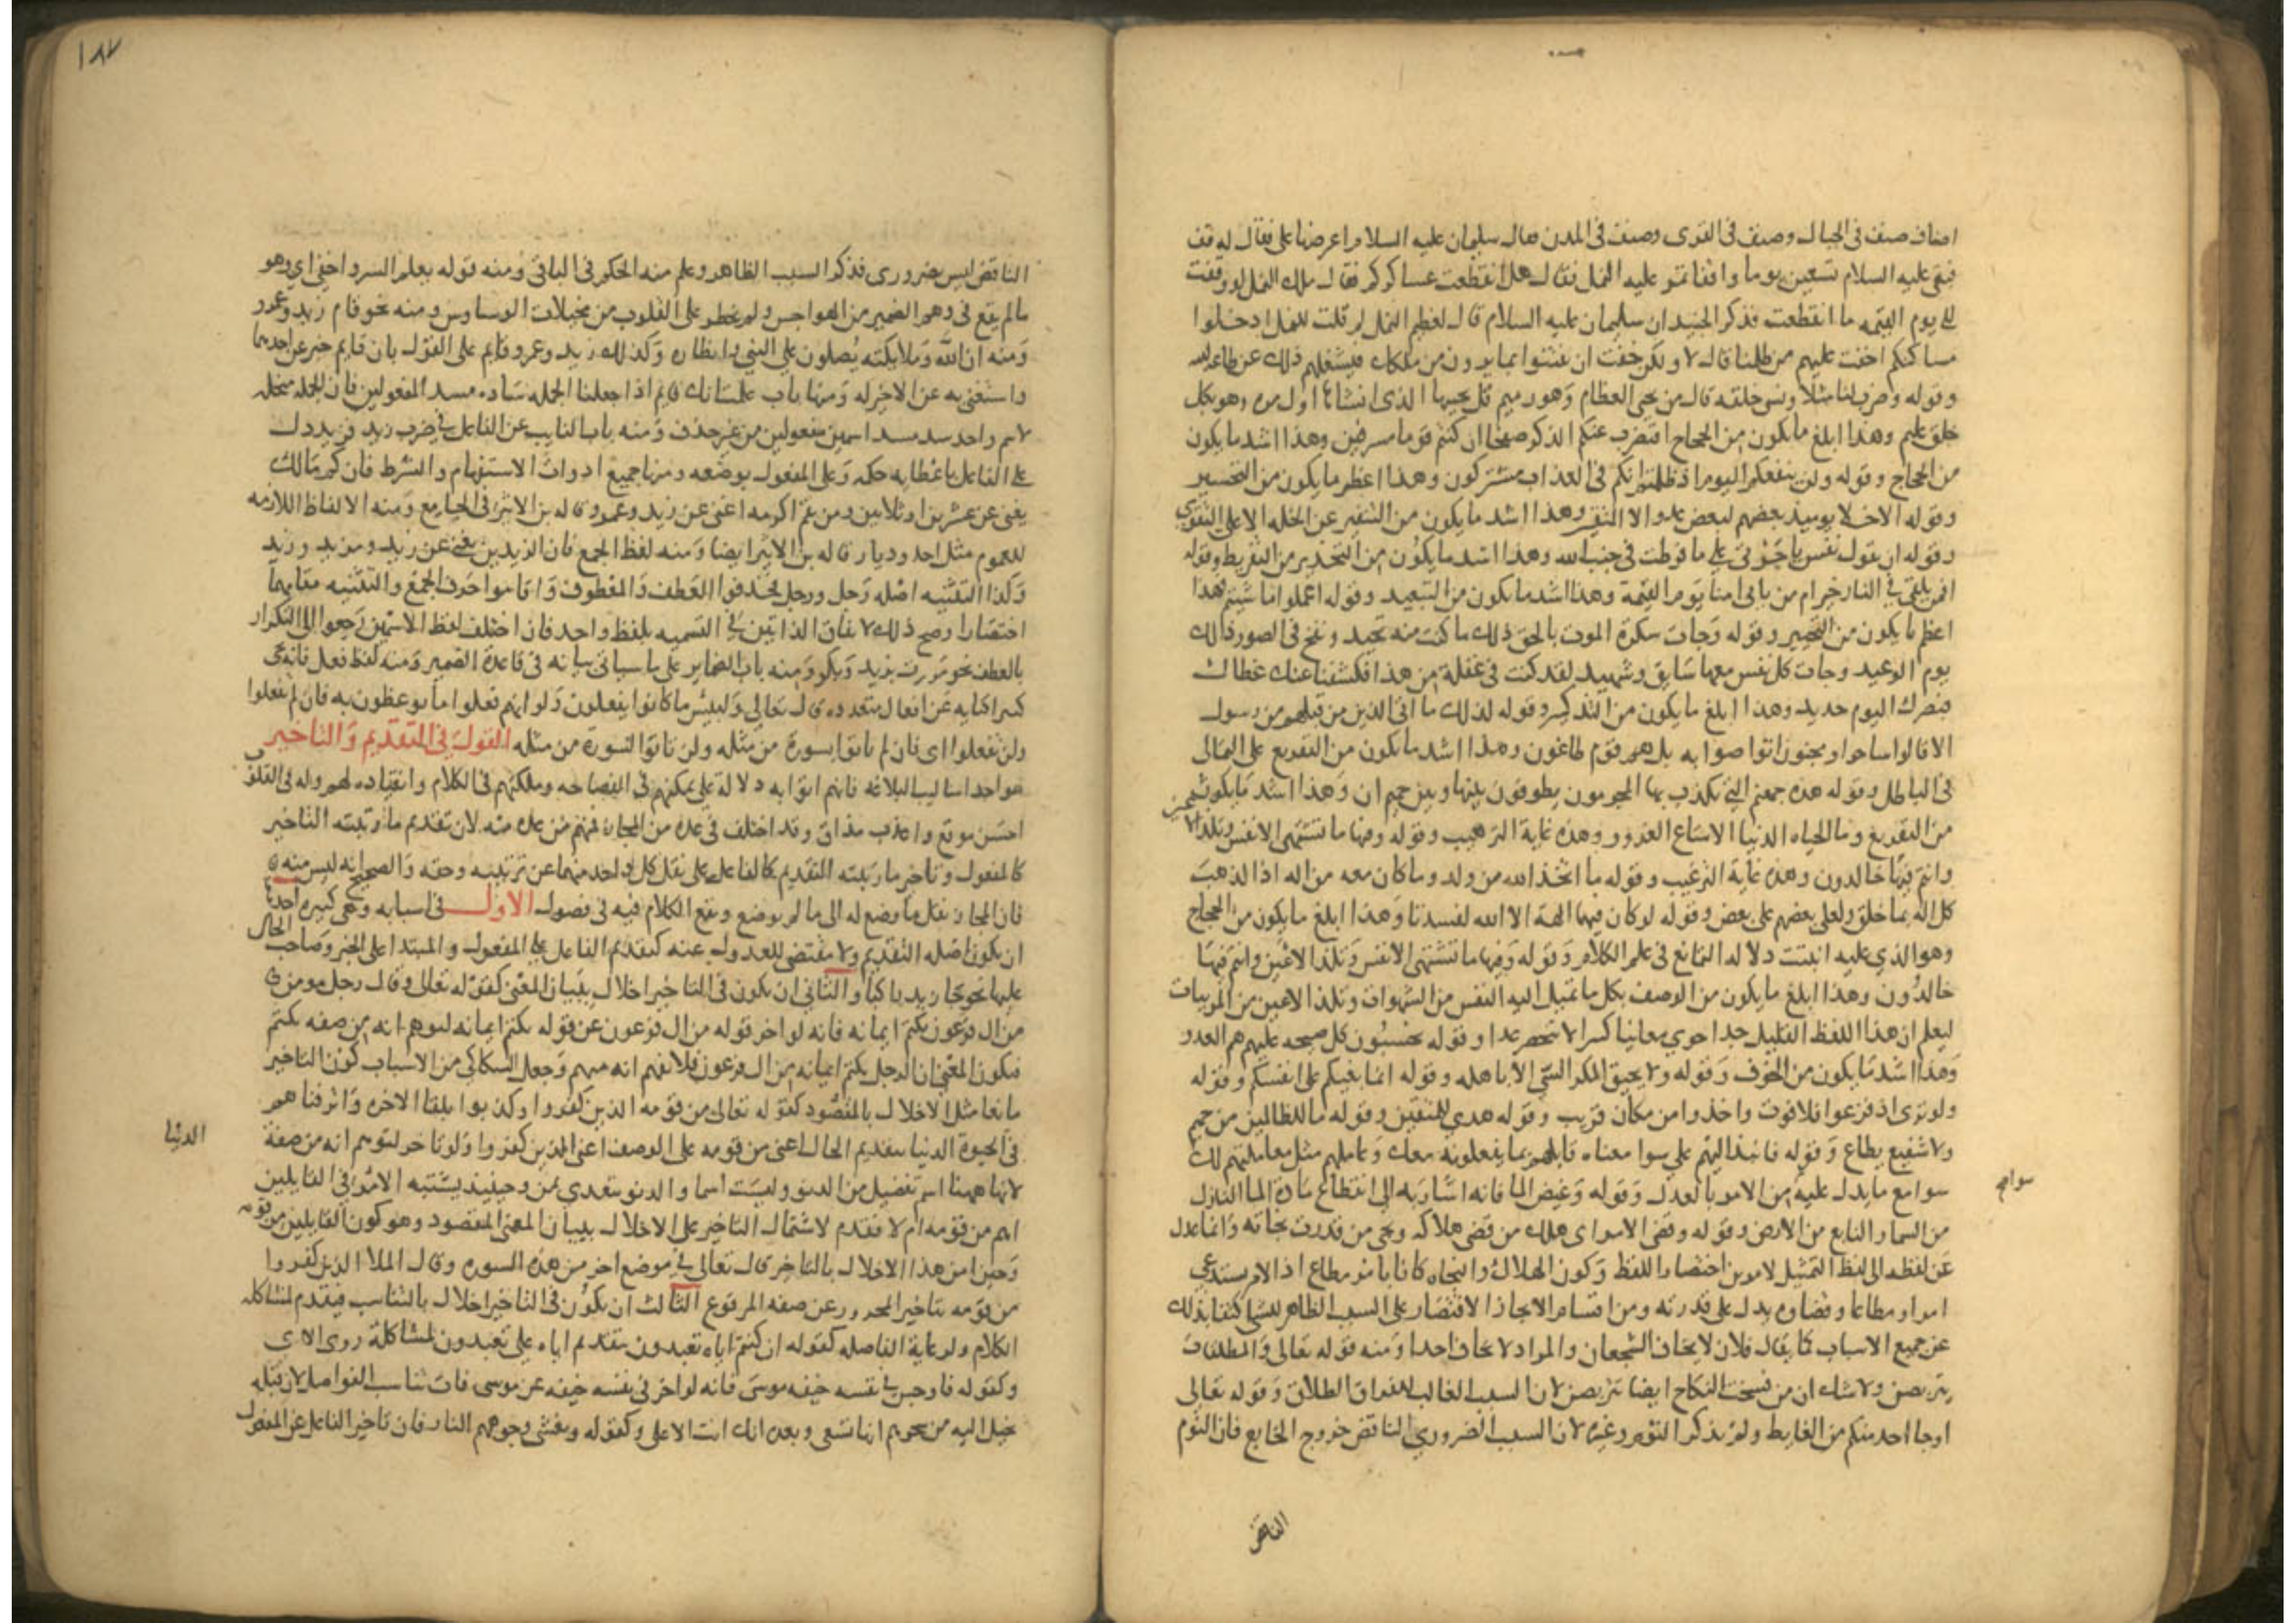 اصناف صنف في الجبال وصنف في القرى وصنف في المدن فقال سليمان عليه السلام اعرضها على فقال له قف
فبقى عليه السلام تسعين يوما واقفا تمر عليه النمل فقال هل انقطعت عساكركم فقال ملك النمل لو وقفت
الى يوم القيمه ما انقطعت فذكر الجنيد ان سليمان عليه السلام قال لعظيم النمل لم قلت للنمل ادخلوا
مساكنكم اخفت عليهم من ظلمنا قال لا ولكن خفت ان يفتتنوا بما يرون من ملكك فيشغلهم ذلك عن طاعه الله
وقوله وضرب لنا مثلا ونسى خلقه قال من يحيى العظام وهي رميم قل يحييها الذي انشاها اول مره وهو بكل
خلق عليم وهذا ابلغ ما يكون من الحجاج افنضرب عنكم الذكر صفحا ان كنتم قوما مسرفين وهذا اشد ما يكون
من الحجاج وقوله ولن ينفعكم اليوم اذ ظلمتم انكم في العذاب مشتركون وهذا اعظم ما يكون من التحسير
وقوله الاخلا يوميذ بعضهم لبعض عدو الا المتقين وهذا اشد ما يكون من التنفير عن الخله الا على التقوى
وقوله ان تقول نفس يا حسرتى على ما فرطت في جنب الله وهذا اشد ما يكون من التحذير من التفريط وقوله
افمن يلقى في النار خير ام من ياتي امنا يوم القيمة وهذا اشد ما يكون من التبعيد وقوله اعملوا ما شيتم هذا
اعظم ما يكون من التخيير وقوله وجات سكرة الموت بالحق ذلك ما كنت منه تحيد ونفخ في الصور ذلك
يوم الوعيد وجات كل نفس معها سايق وشهيد لقد كنت في غفلة من هذا فكشفنا عنك غطاك
فبصرك اليوم حديد وهذا ابلغ ما يكون من التذكير وقوله كذلك ما اتى الذين من قبلهم من رسول
الا قالوا ساحر او مجنون اتواصوا به بل هم قوم طاغون وهذا اشد ما يكون من التقريع على التمالى
في الباطل وقوله هذه جهنم التي يكذب بها المجرمون يطوفون بينها وبين حميم ان وهذا اشد ما يكون
من التقريع وما الحياه الدنيا الا متاع الغرور وهذه غاية الترهيب وقوله وفيها ما تشتهي الانفس وتلذ الاعين
وانتم فيها خالدون وهذه غاية الترغيب وقوله ما اتخذ الله من ولد وما كان معه من اله اذا لذهب
كل اله بما خلق ولعلى بعضهم على بعض وقوله لو كان فيهما الهة الا الله لفسدتا وهذا ابلغ ما يكون من الحجاج
وهو الذي عليه انبنت دلاله التمانع في علم الكلام وقوله وفيها ما تشتهي الانفس وتلذ الاعين وانتم فيها
خالدون وهذا ابلغ ما يكون من الوصف بكل ما تميل اليه النفس من الشهوات وتلذ الاعين من المرييات
ليعلم ان هذا اللفظ القليل جدا حوي معانيا كثيرا لا تنحصر عدا وقوله يحسبون كل صيحه عليهم هم العدو
وهذا اشد ما يكون من الخوف وقوله ولا يحيق المكر السيئ الا باهله وقوله انما بغيكم على انفسكم وقوله
ولو ترى اذ فزعوا فلا فوت واخذوا من مكان قريب وقوله هدى للمتقين وقوله ما للظالمين من حميم
ولا شفيع يطاع وقوله فانبذ اليهم على سوا معناه قابلهم بما يفعلونه معك وعاملهم مثل معاملتهم لك
سوا مع ما يدل عليه من الامر بالعدل وقوله وغيض الما فانه اشار به الى انقطاع مادة الما النازل
من السما والنابع من الارض وقوله وقضى الامر اي هلك من قضى هلاكه ونجى من قدرت نجاته وانما عدل
عن لفظه الى لفظ التمثيل لامرين اختصار اللفظ وكون الهلاك والنجاه كانا بامر مطاع اذ الامر يستدعي
امرا ومطاعا وقضاوه يدل على قدرته ومن اقسام الايجاز الاقتصار على السبب الظاهر للشي اكتفا بذلك
عن جميع الاسباب كما يقال فلان لا يخاف الشجعان والمراد لا يخاف احدا ومنه قوله تعالى والمطلقات
يتربصن ولا شك ان من فسخت النكاح ايضا تتربصن لان السبب الغالب للفراق الطلاق وقوله تعالى
او جا احد منكم من الغايط ولم يذكر النوم وغيره لان السبب الضروري الناقض خروج الخارج فان النوم
الناقض
سوا
١٨٧
الناقض ليس بضروري فذكر السبب الظاهر وعلم منه الحكم في الباقي ومنه قوله يعلم السر واخفى اي وهو
ما لم يقع في وهم الضمير من الهواجس ولم يخطر على القلوب من مخيلات الوساوس ومنه نحو قام زيد وعمرو
ومنه ان الله وملايكته يصلون على النبي وانظاره وكذلك زيد وعمرو قايم على القول بان قايم خبر عن احدهما
واستغنى به عن الاخر له ومنها باب علمت انك قايم اذا جعلنا الجمله ساده مسد المفعولين فان الجمله منحله
لاسم واحد سد مسد اسمين مفعولين من غير حذف ومنه باب النايب عن الفاعل في ضرب زيد فزيد دل
على الفاعل باعطايه حكمه وعلى المفعول بوضعه ومنها جميع ادوات الاستفهام والشرط فان كم مالك
يغنى عن عشرين او ثلاثين ومن يقم اكرمه اغنى عن زيد وعمرو قاله بن الاثير في الجامع ومنه الالفاظ اللازمه
للعموم مثل احد وديار قاله بن الاثير ايضا ومنه لفظ الجمع فان الزيدين يغنى عن زيد وزيد وزيد
وكذا التثنيه اصله رجل ورجل فحذفوا العطف والمعطوف واقاموا حرف الجمع والتثنيه مقامهما
اختصارا وصح ذلك لاتفاق الذاتين في التسميه بلفظ واحد فان اختلف لفظ الاسمين رجعوا الى التكرار
بالعطف نحو مررت بزيد وبكر ومنه باب الضماير على ما سياتى بيانه في قاعدة الضمير ومنه لفظ فعل فانه يجى
كثيرا كنايه عن افعال متعدده قال تعالى ولبيس ما كانوا يفعلون ولو انهم فعلوا ما يوعظون به فان لم تفعلوا
ولن تفعلوا اى فان لم تاتوا بسورة من مثله ولن تاتوا بسورة من مثله القول في التقديم والتاخير
هو احد اساليب البلاغه فانهم اتوا به دلالة على تمكنهم في الفصاحه وملكتهم في الكلام وانقياده لهم وله في القلوب
احسن موقع واعذب مذاق وقد اختلف في عده من المجاز فمنهم من عده منه لان تقديم ما رتبته التاخير
كالمفعول وتاخير ما رتبته التقديم كالفاعل على نقل كل واحد منهما عن رتبته وحقه والصحيح انه ليس منه
فان المجاز نقل ما وضع له الى ما لم يوضع ويقع الكلام فيه في فصول الاول في اسبابه وهي كثيره احدها
ان يكون اصله التقديم ولا مقتضى للعدول عنه كتقديم الفاعل على المفعول والمبتدا على الخبر وصاحب الحال
عليها نحو جا زيد باكيا والثاني ان يكون في التاخير اخلال ببيان المعنى كقوله تعالى وقال رجل مومن
من ال فرعون يكتم ايمانه فانه لو اخر قوله من ال فرعون عن قوله يكتم ايمانه لتوهم انه من صفه يكتم
فيكون المعنى ان الرجل يكتم ايمانه من ال فرعون فلا يفهم انه منهم وجعل السكاكي من الاسباب كون التاخير
مانعا مثل الاخلال بالمقصود كقوله تعالى من قومه الذين كفروا وكذبوا بلقا الاخره واترفناهم
في الحيوة الدنيا بتقديم الحال اعنى من قومه على الوصف اعنى الذين كفروا ولو تاخر لتوهم انه من صفة
الدنيا
لانها ههنا اسم تفضيل من الدنو وليست اسما والدنو يتعدى بمن وحينيذ يشتبه الامر في القايلين
اهم من قومه ام لا فقدم لاشتمال التاخير على الاخلال ببيان المعنى المقصود وهو كون القايلين من قومه
وحين امن هذا الاخلال بالتاخير قال تعالى في موضع اخر من هذه السوره وقال الملا الذين كفروا
من قومه بتاخير المجرور عن صفه المرفوع الثالث ان يكون في التاخير اخلال بالتناسب فيقدم لمشاكله
الكلام ولرعاية الفاصله كقوله ان كنتم اياه تعبدون بتقديم اياه على تعبدون لمشاكلة روى الاي
وكقوله فاوجس في نفسه خيفه موسى فانه لو اخر في نفسه خيفه عن موسى فات تناسب الفواصل لان قبله
يخيل اليه من سحرهم انها تسعى وبعده انك انت الاعلى وكقوله وتغشى وجوههم النار فان تاخير الفاعل عن المفعول